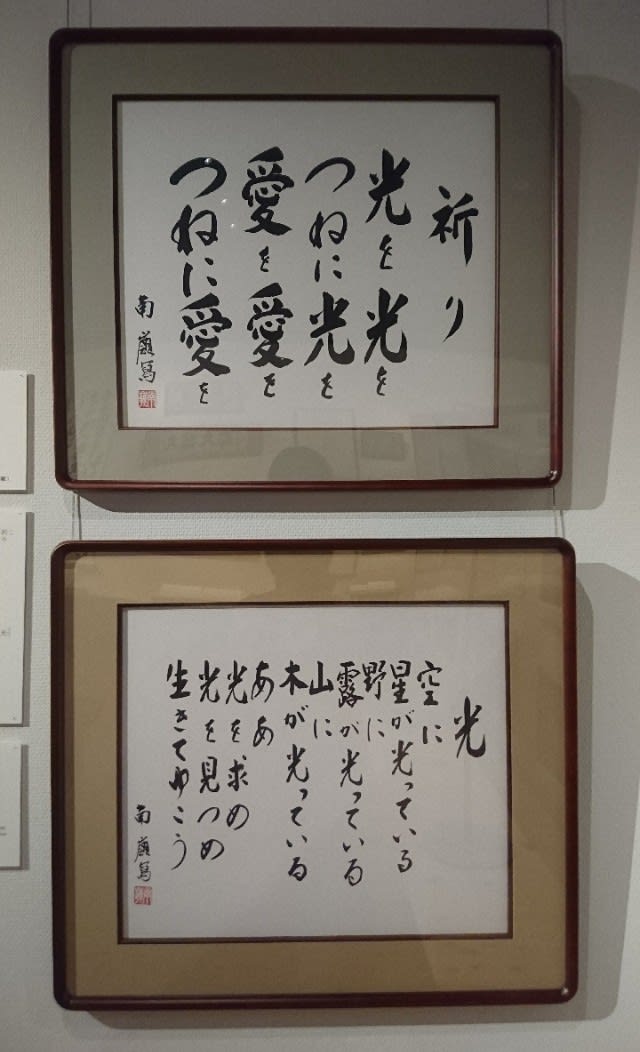 祈り
光を光を
つねに光を
愛を愛を
つねに愛を
光
空に
星が光っている
野に
露が光っている
山に
木が光っている
ああ
光を求め
光を見つめ
生きてゆこう